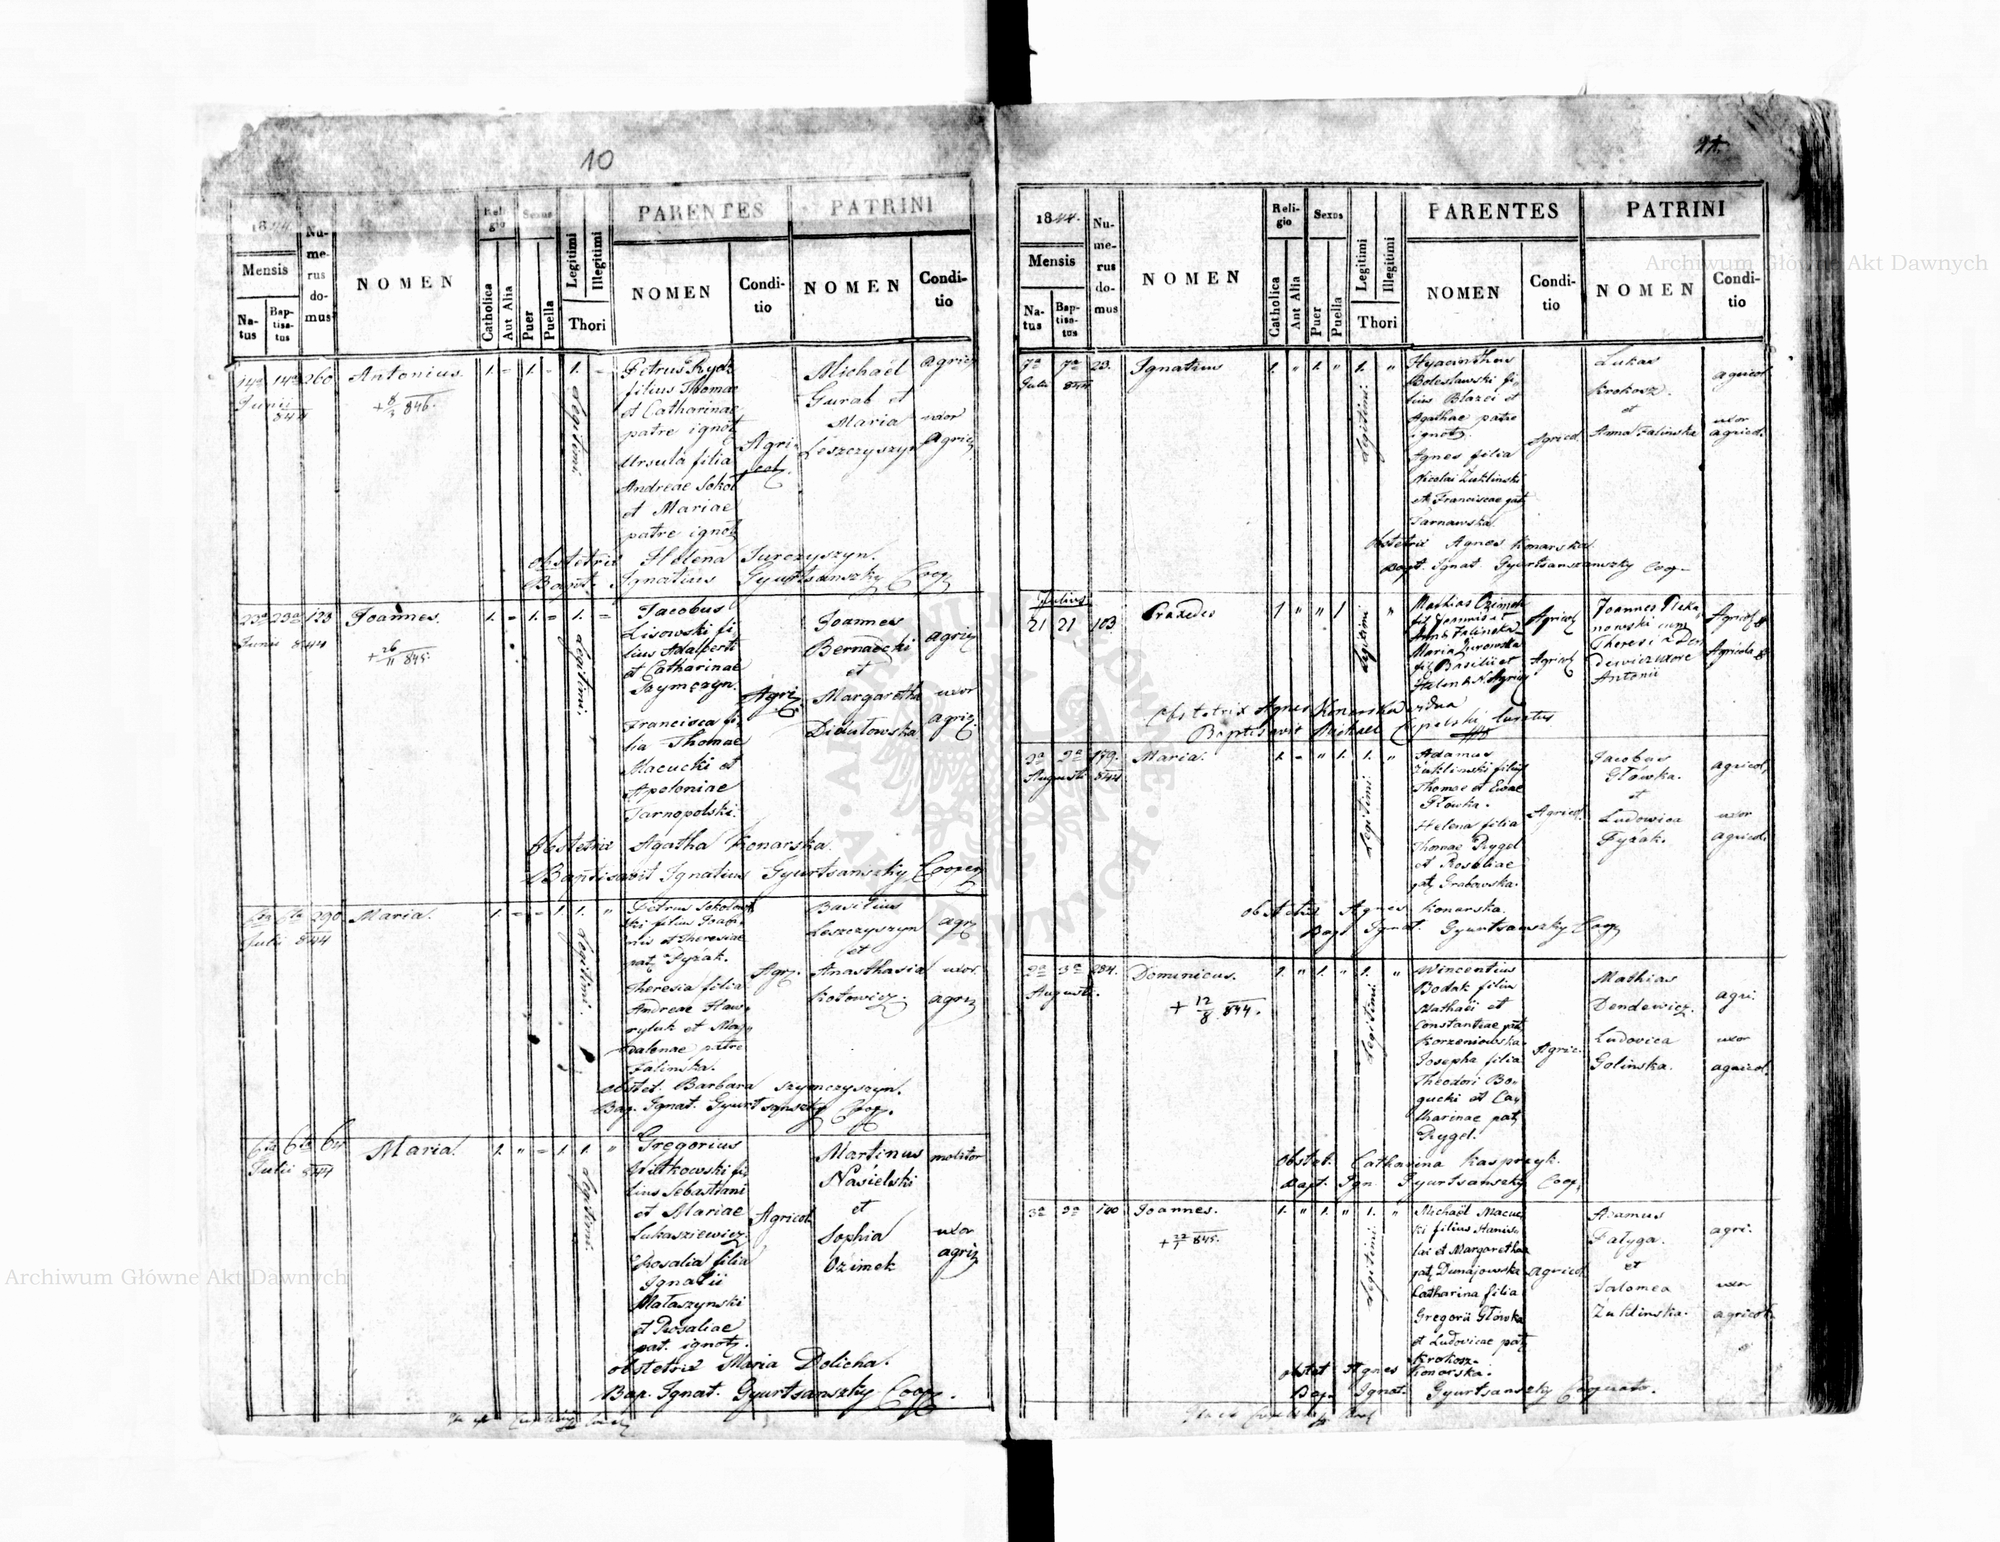 10
1844.
Mensis
Na-
tus
Bap-
tisa-
tus
Nu-
me-
rus
do-
mus
NOMEN
Reli-
gio
Catholica
Aut Alia
Sexus
Puer
Puella
Legitimi
Illegitimi
Thori
PARENTES
NOMEN
Condi-
tio
PATRINI
NOMEN
Condi-
tio
14a 14a 260
Junii
844
Antonius
+ 8/3 846.
1. 1. 1.
Legitimi.
Petrus Rydz
filius Thomae
et Catharinae
patre ignotz
Ursula filia
Andreae Sokol
et Mariae
patre ignotz
Agri-
colz.
Michaël
Gurab et
Maria
Leszczyszyn
agricz
uxor
Agricz
obstetrix Helena Jurczyszyn.
Bapt. Ignatius Gyurtsánszky Coop.
23a 23a 123
Junii 844
Joannes.
+ 26/11 845.
1. 1. 1.
Legitimi.
Jacobus
Lisowski fi
lius Adalberti
et Catharinae
Szymczyn.
Francisca fi
lia Thomae
Macucki et
Apoloniae
Tarnopolski.
Agriz.
Joannes
Bernacki
et
Margaretha
Didutowska
agriz
uxor
agriz.
obstetrix Agatha Konarska.
Baptisavit Ignatius Gyurtsanszky Cooper
290
Julii 844
Maria.
1. 1. 1.
Legitimi.
Petrus Sokolow
ski filius Joan
nis et Theresiae
patz Fyzak.
Theresia filia
Andreae Haw
ryluk et Mag
dalenae patre
Falinska.
Agz.
Basilius
Leszczyszyn
et
Anasthasia
Kotowicz.
agz
uxor.
agriz
obstet. Barbara Szymczyszyn.
Bap. Ignat. Gyurtsanszky Coop.
6ta 6ta
Julii 844
Maria.
1. 1. 1.
Legitimi.
Gregorius
Wittkowski fi
lius Sebastiani
et Mariae
Lukasziewicz.
Rosalia filia
Ignatii
Mataszynski
et Rosaliae
pat. ignotz.
Agricol.
Martinus
Nasielski
et
Sophia
Ozimek
molitor
uxor
agriz
obstetrix Maria Dolicha.
Bap. Ignat. Gyurtsanszky Coop.
1844.
Mensis
Na-
tus
Bap-
tisa-
tus
Nu-
me-
rus
do-
mus
NOMEN
Reli-
gio
Catholica
Aut Alia
Sexus
Puer
Puella
Legitimi
Illegitimi
Thori
PARENTES
NOMEN
Condi-
tio
PATRINI
NOMEN
Condi-
tio
7a 7a 23.
Julii 844
Ignatius
1. 1. 1.
Legitimi.
Hyacinthus
Boleslawski fi-
lius Blazei et
Agathae patre
ignotz.
Agnes filia
Nicolai Zuklinski
et Franciscae patz
Tarnawska.
Agricol.
Lukas
Krokosz.
et
Anna Falinska
agricol
uxor
agricol.
obstetrix Agnes Konarska.
Bapt. Ignat Gyurtsanszky Coop.
Julius
21 21 103.
Praxedes
1 1
Legitimi
Mathias Ozimek
fil Joannis et
Anna Falinska
Maria Zurowska
fil Basilii et
Agricolz
Agricolz
Joannes Pieka
nowski cum
Theresia Den
dewicz uxore
Antonii
Agricolz
Agricola
Obstetrix Agnes Konarska vidua
Baptisavit Michael Curatus
2a 2a 179.
Augusti 844.
Maria.
1. 1. 1.
Legitimi.
Adamus
Zuklinski filius
Thomae et Evae
Główka.
Helena filia
Thomae Rygel
et Rosaliae
patz Grabowska.
Agricol.
Jacobus
Główka.
et
Ludowica
Fyzak.
agricol.
uxor
agricol.
obstetrix Agnes Konarska.
Bap Ignat. Gyurtsanszky Coop
3a 284.
Augusti.
Dominicus.
+ 12/8 844.
1. 1. 1.
Legitimi
Wincentius
Bodak filiu
Mathaei et
Constantiae patz
Korzeniowska.
Josepha filia
Theodori Bo-
gucki et Ca-
tharinae patz
Rygel.
Agric.
Mathias
Dendewicz.
Ludovica
Golinska.
agri.
uxor
agricol.
Obstet. Catharina Kasprzyk.
Bapt. Ign Gyurtsanszky Coop.
3a 3a 100
Joannes.
+ 22/1 845.
1. 1. 1.
Legitimi.
Michaël Macuc
ki filius Stanis-
lai et Margaretha
patz Dunajowska
Catharina filia
Gregorii Główka
et Ludovicae patz
Krokosz.
agricol
Adamus
Fatyga.
et
Salomea
Zuklinska.
agri.
uxor
agricol.
obstet Agnes Konarska.
Bap. Ignat. Gyurtsanszky Cooperato.
Archiwum Główne Akt Dawnych
Archiwum Główne Akt Dawnych